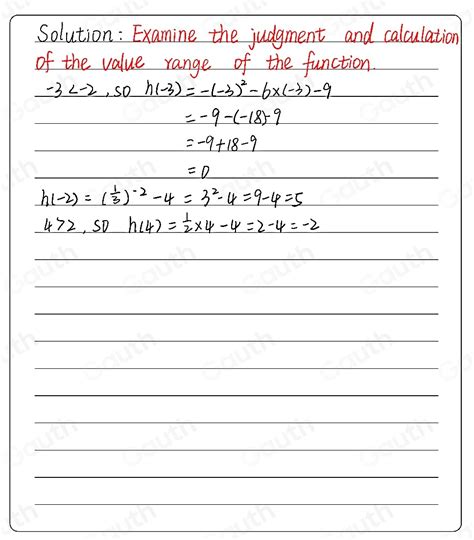 Solution: Examine the judgment and calculation
of the value range of the function.
-3 < -2, so h(-3) = -(-3)² - 6×(-3) - 9
= -9 - (-18) - 9
= -9 + 18 - 9
= 0
h(-2) = (1/3)⁻² - 4 = 3² - 4 = 9 - 4 = 5
4 > 2, so h(4) = 1/2 × 4 - 4 = 2 - 4 = -2